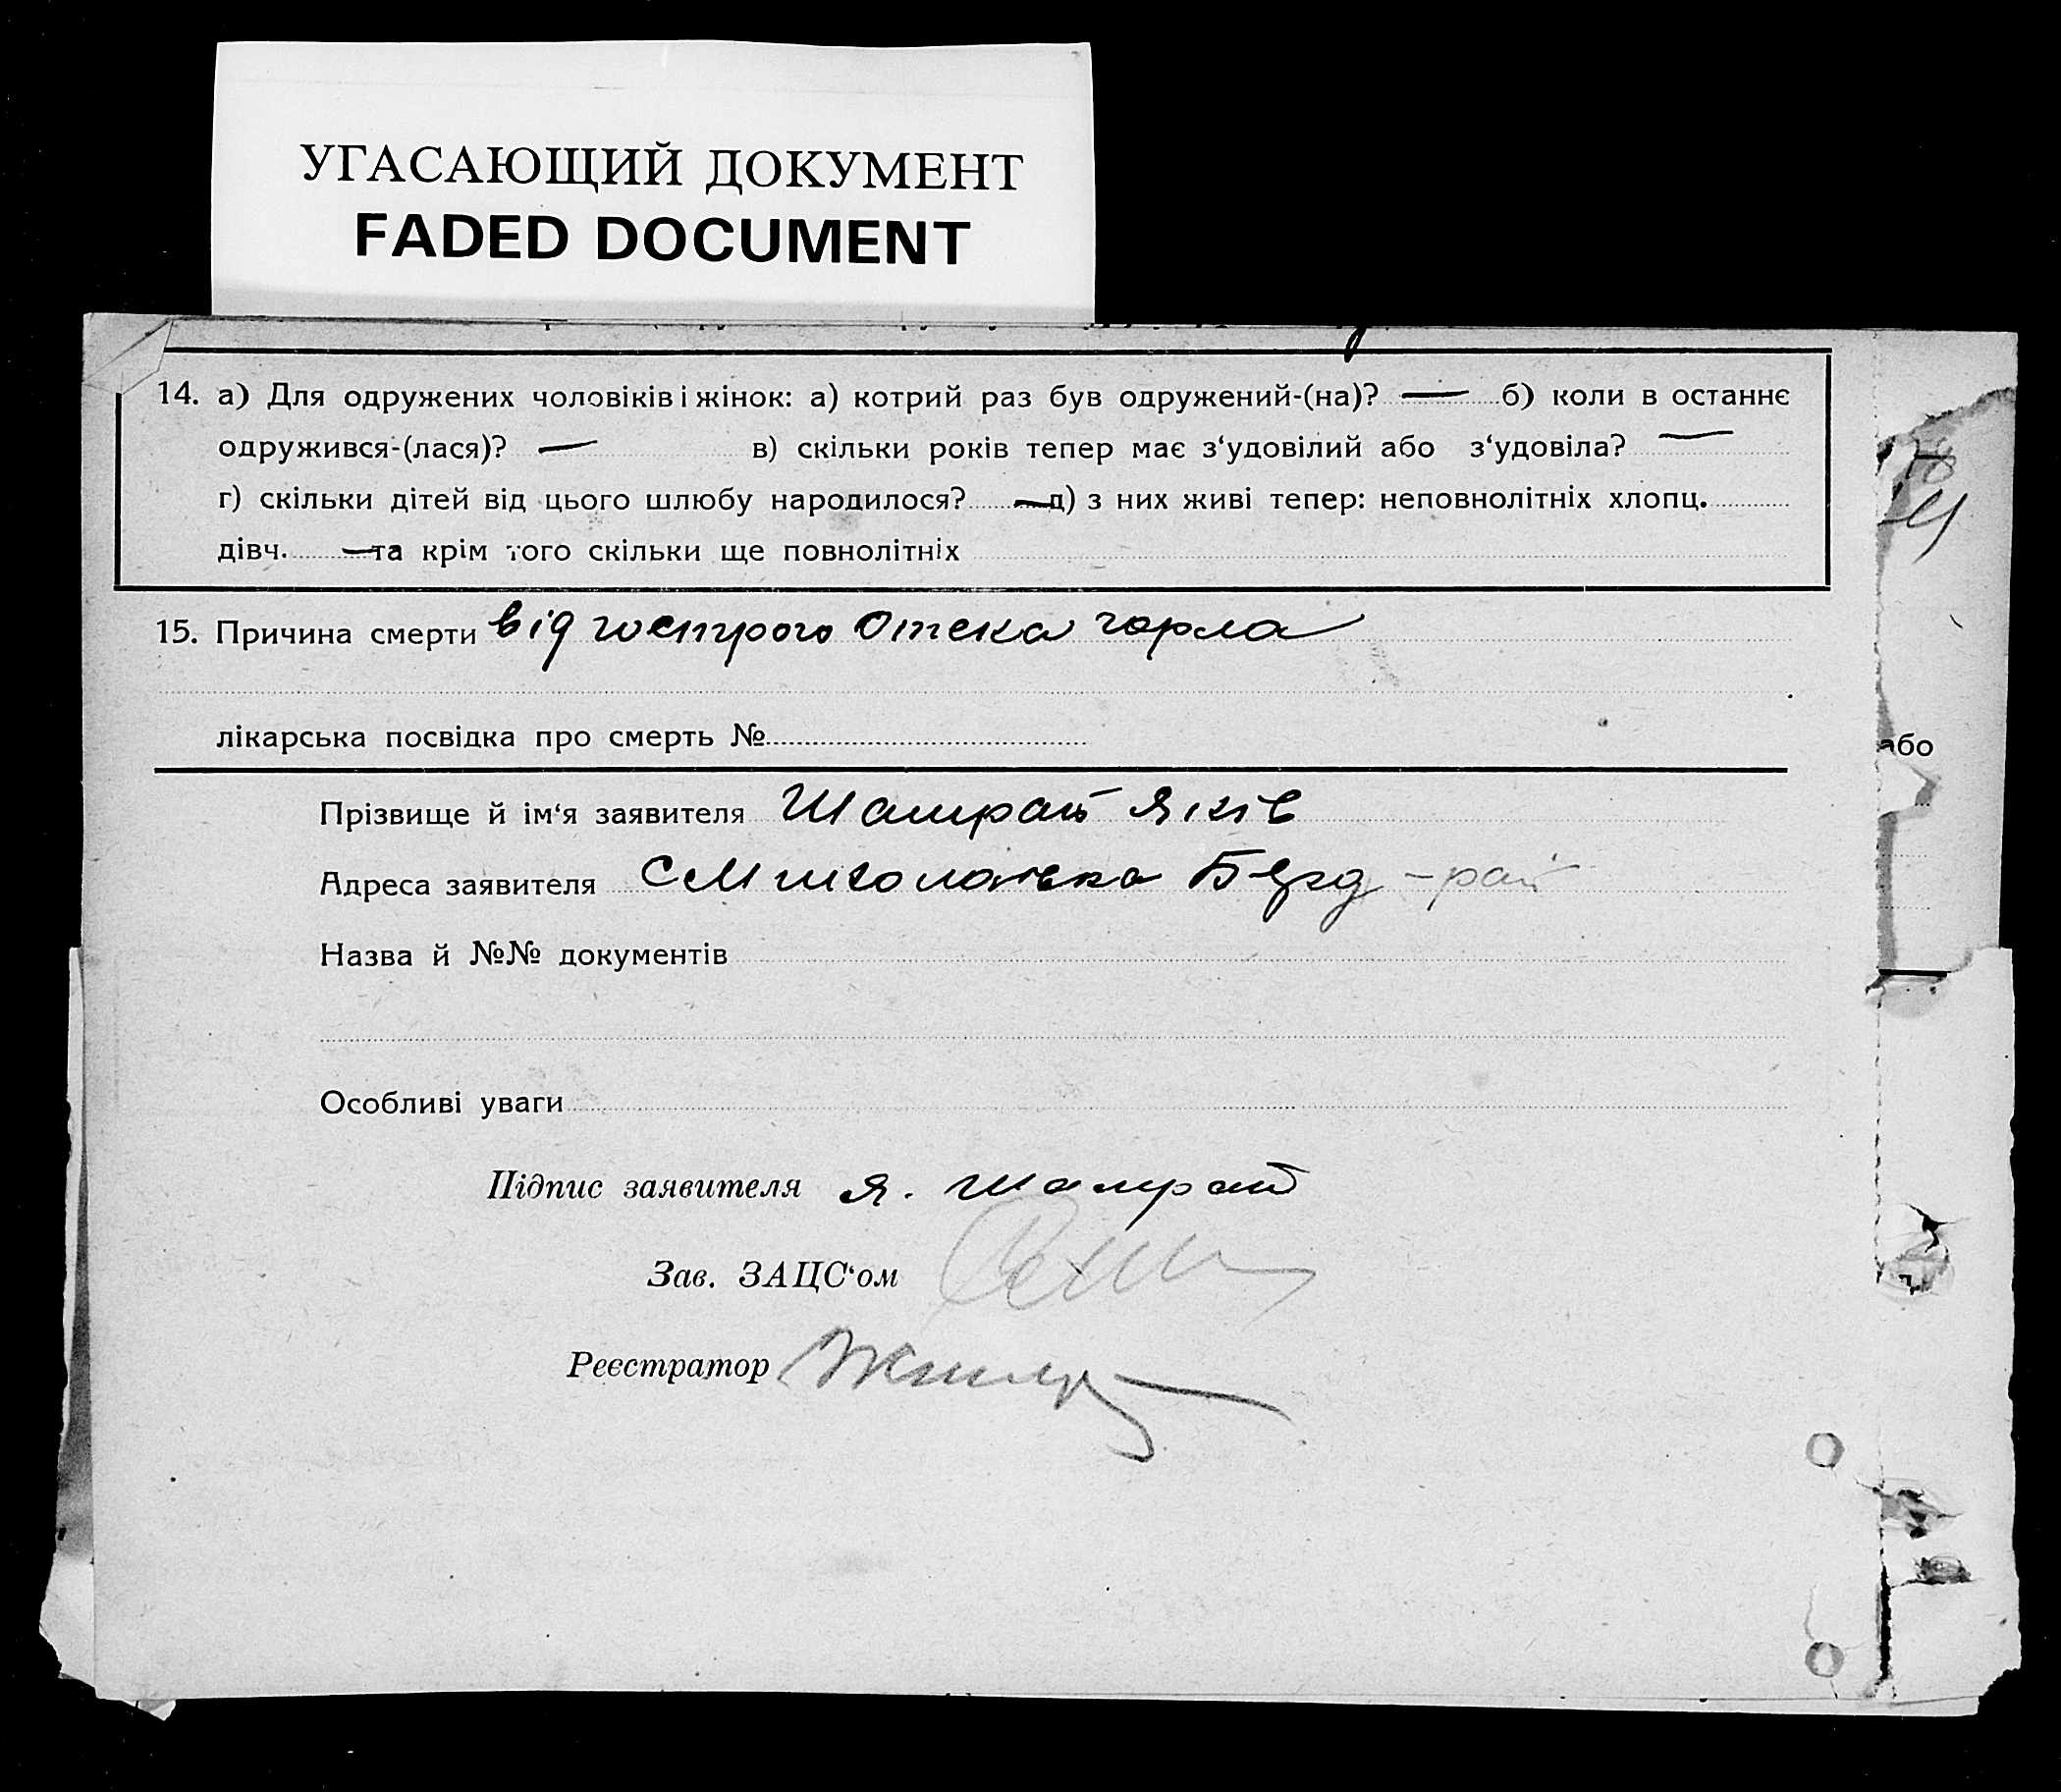 УГАСАЮЩИЙ ДОКУМЕНТ
FADED DOCUMENT
14. а) Для одружених чоловіків і жінок: а) котрий раз був одружений-(на)? — б) коли в останнє
одружився-(лася)? — в) скільки років тепер має з‘удовілий або з‘удовіла? —
г) скільки дітей від цього шлюбу народилося? — д) з них живі тепер: неповнолітніх хлопц.
дівч. — та крім того скільки ще повнолітніх
15. Причина смерти від гострого отека горла
лікарська посвідка про смерть №
або
Прізвище й ім‘я заявителя Шамрай Яків
Адреса заявителя с Миколаївка Берд - рай
Назва й №№ документів
Особливі уваги
Підпис заявителя Я. Шамрай
Зав. ЗАЦС‘ом
Реєстратор